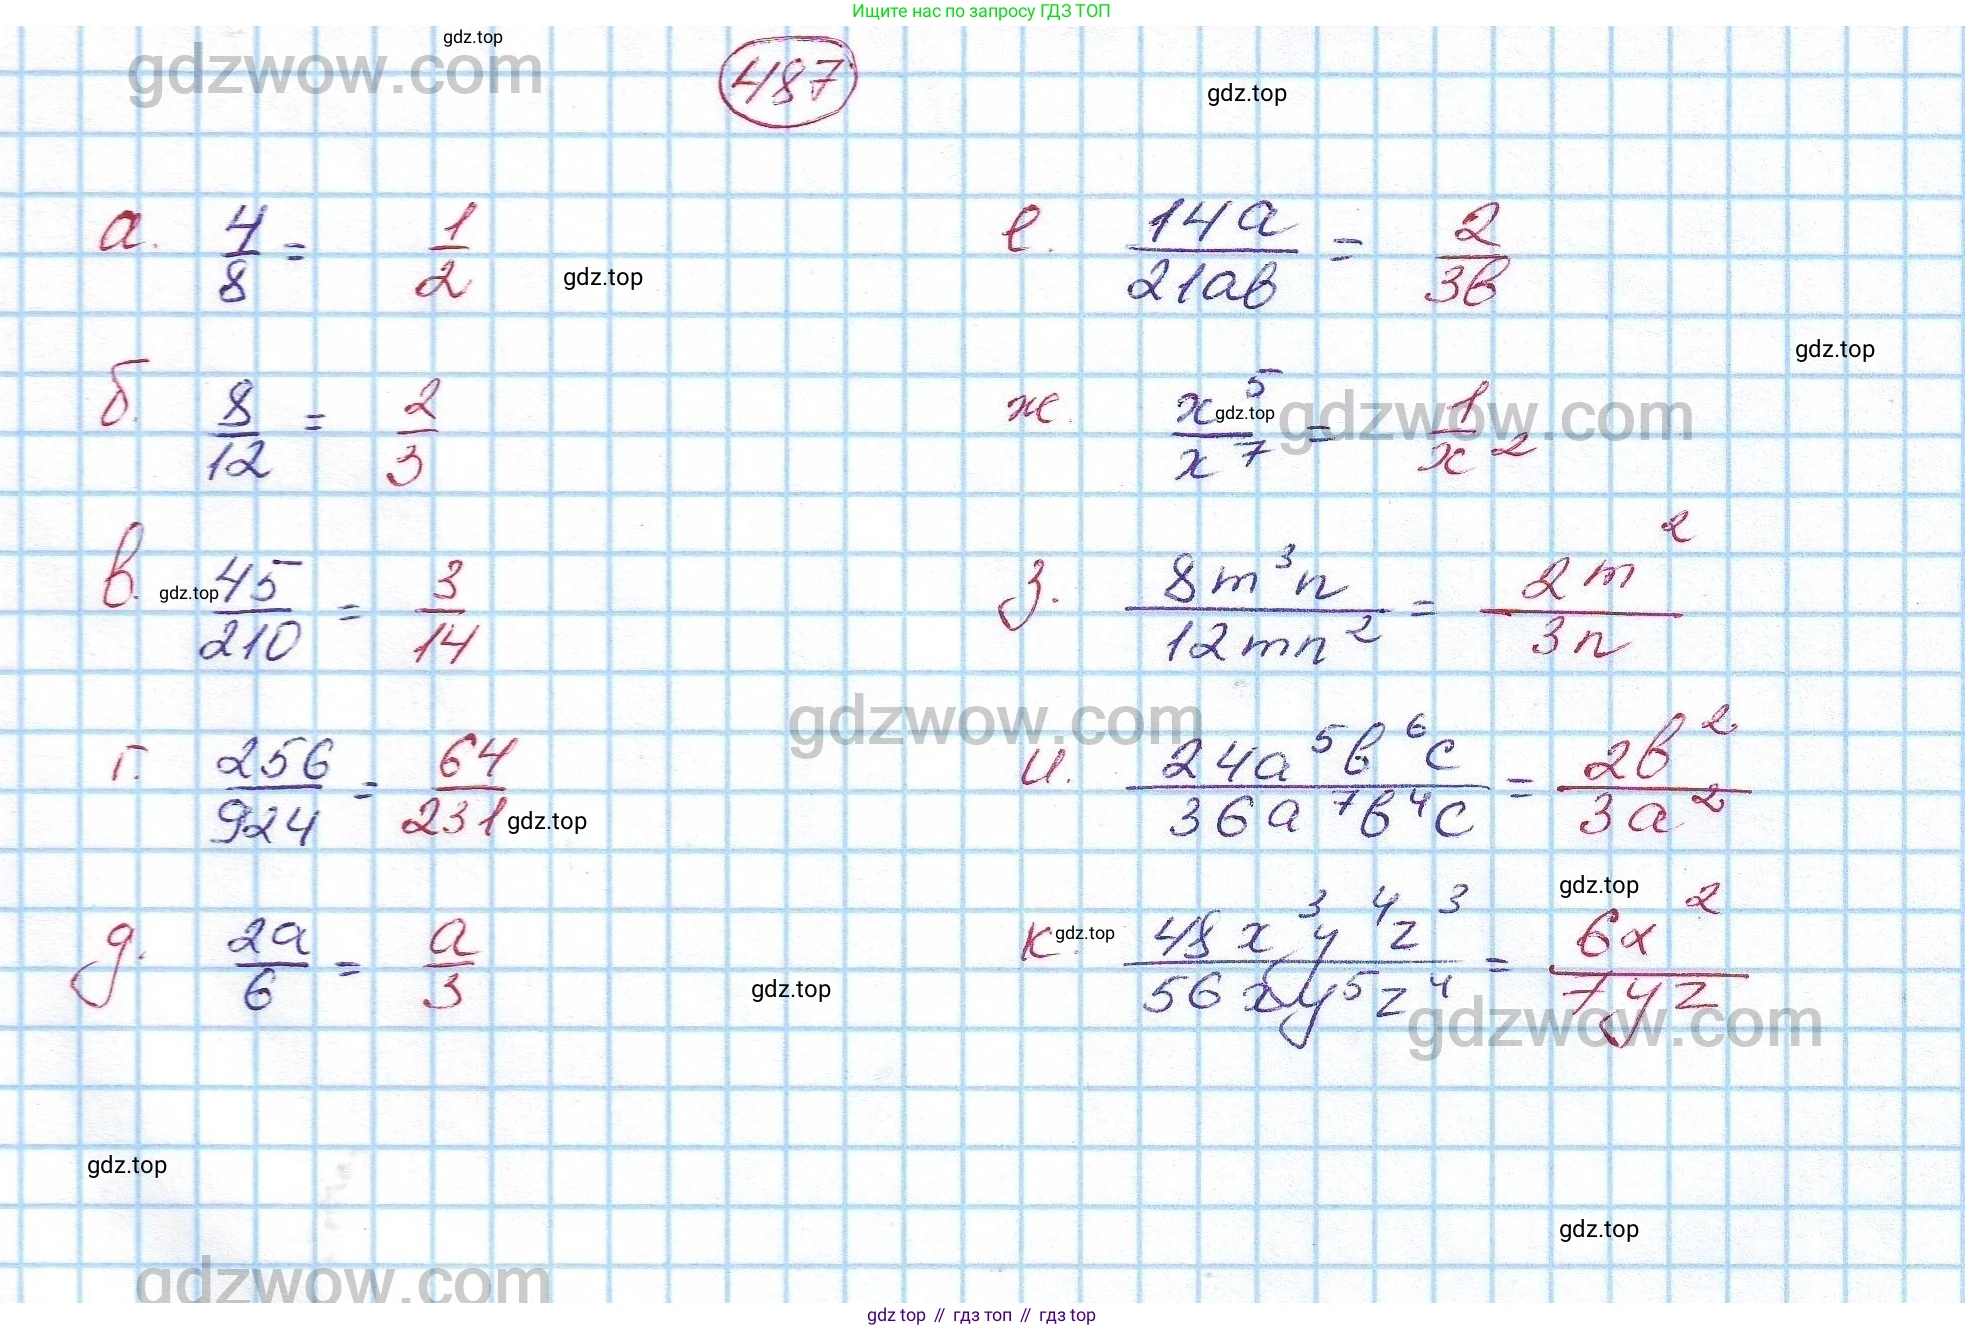 Ищите нас по запросу ГДЗ ТОП
gdz.top
gdzwow.com
487
gdz.top
а. 4/8 = 1/2
gdz.top
е. 14a/21ab = 2/3b
gdz.top
б. 8/12 = 2/3
ж. x^5/x^7 = 1/x^2
gdz.top
gdzwow.com
в. 45/210 = 3/14
gdz.top
з. 8m^3n/12mn^2 = 2m^2/3n
gdzwow.com
г. 256/924 = 64/231
gdz.top
и. 24a^5b^6c/36a^7b^4c = 2b^2/3a^2
gdz.top
д. 2a/6 = a/3
gdz.top
к. 48x^3y^4z^3/56xy^5z^4 = 6x^2/7yz
gdz.top
gdzwow.com
gdz.top
gdz.top
gdzwow.com
gdz top // гдз топ // гдз top